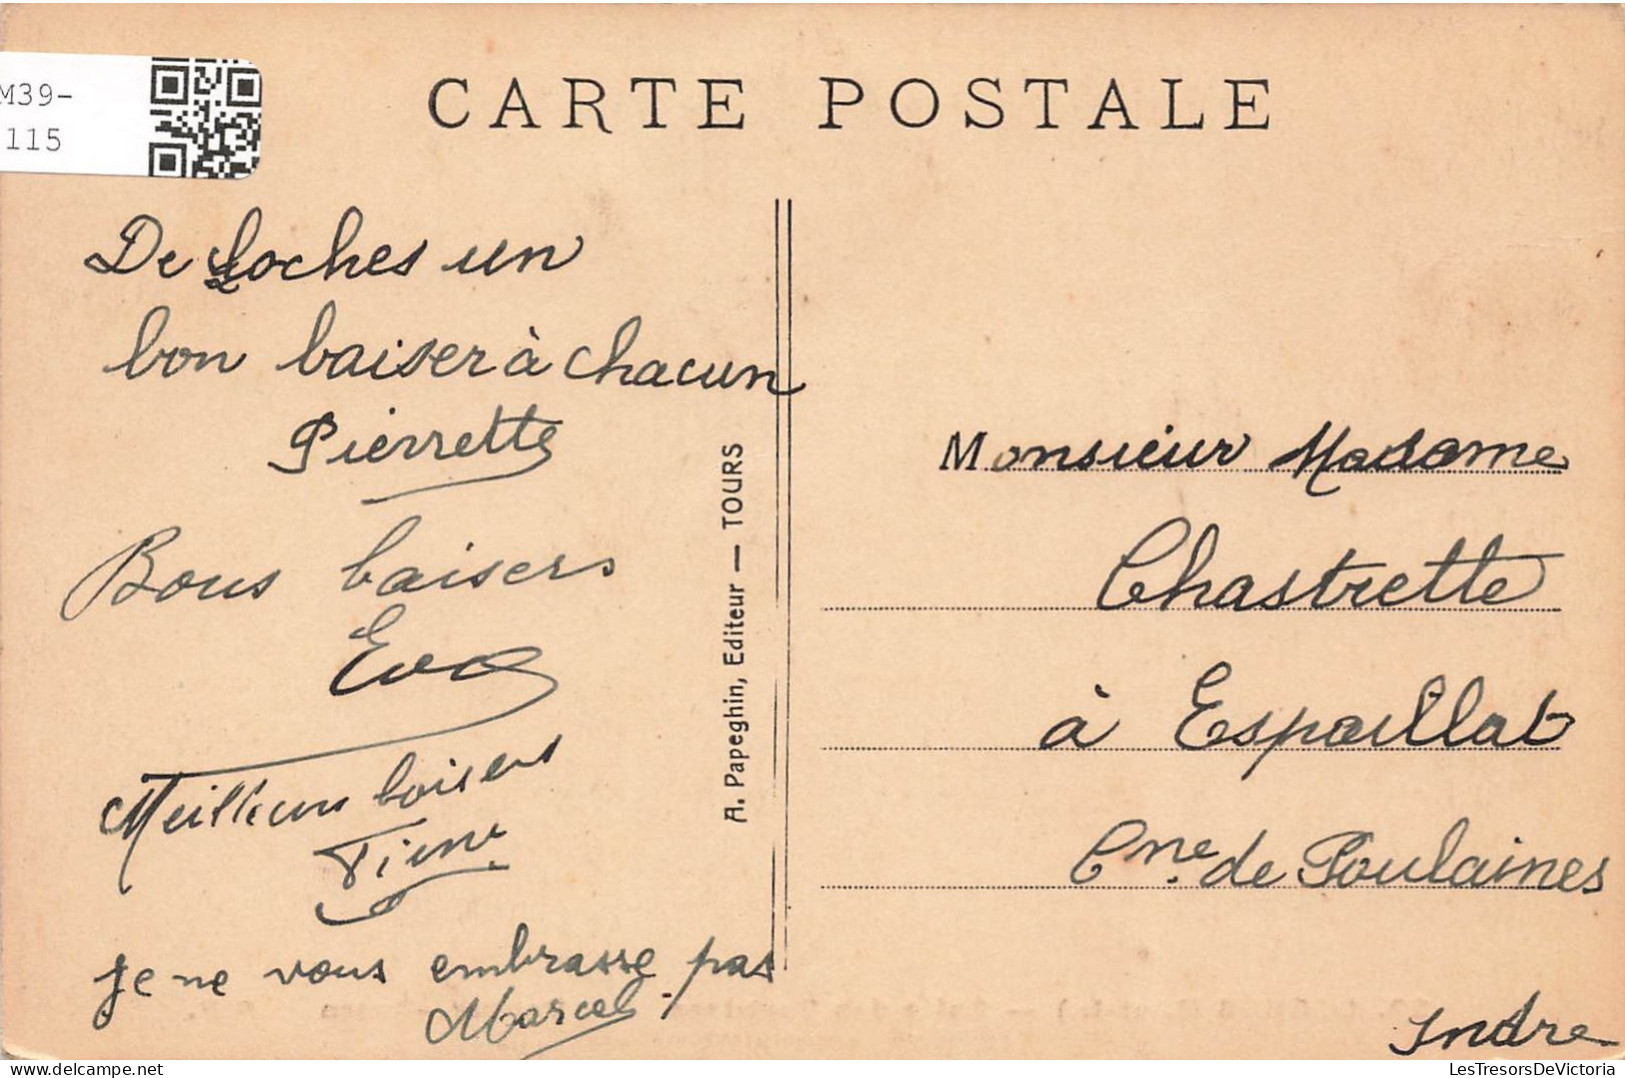 M39-
115
CARTE POSTALE
De Loches un
bon baiser à chacun
Pierrette
Bons baisers
Eva
Meilleurs baisers
je ne vous embrasse pas
Marcel
A. Papeghin, Editeur — TOURS
Monsieur Madame
Chastrette
à Espaillat
Cne. de Poulaines
Indre
LesTresorsDeVictoria